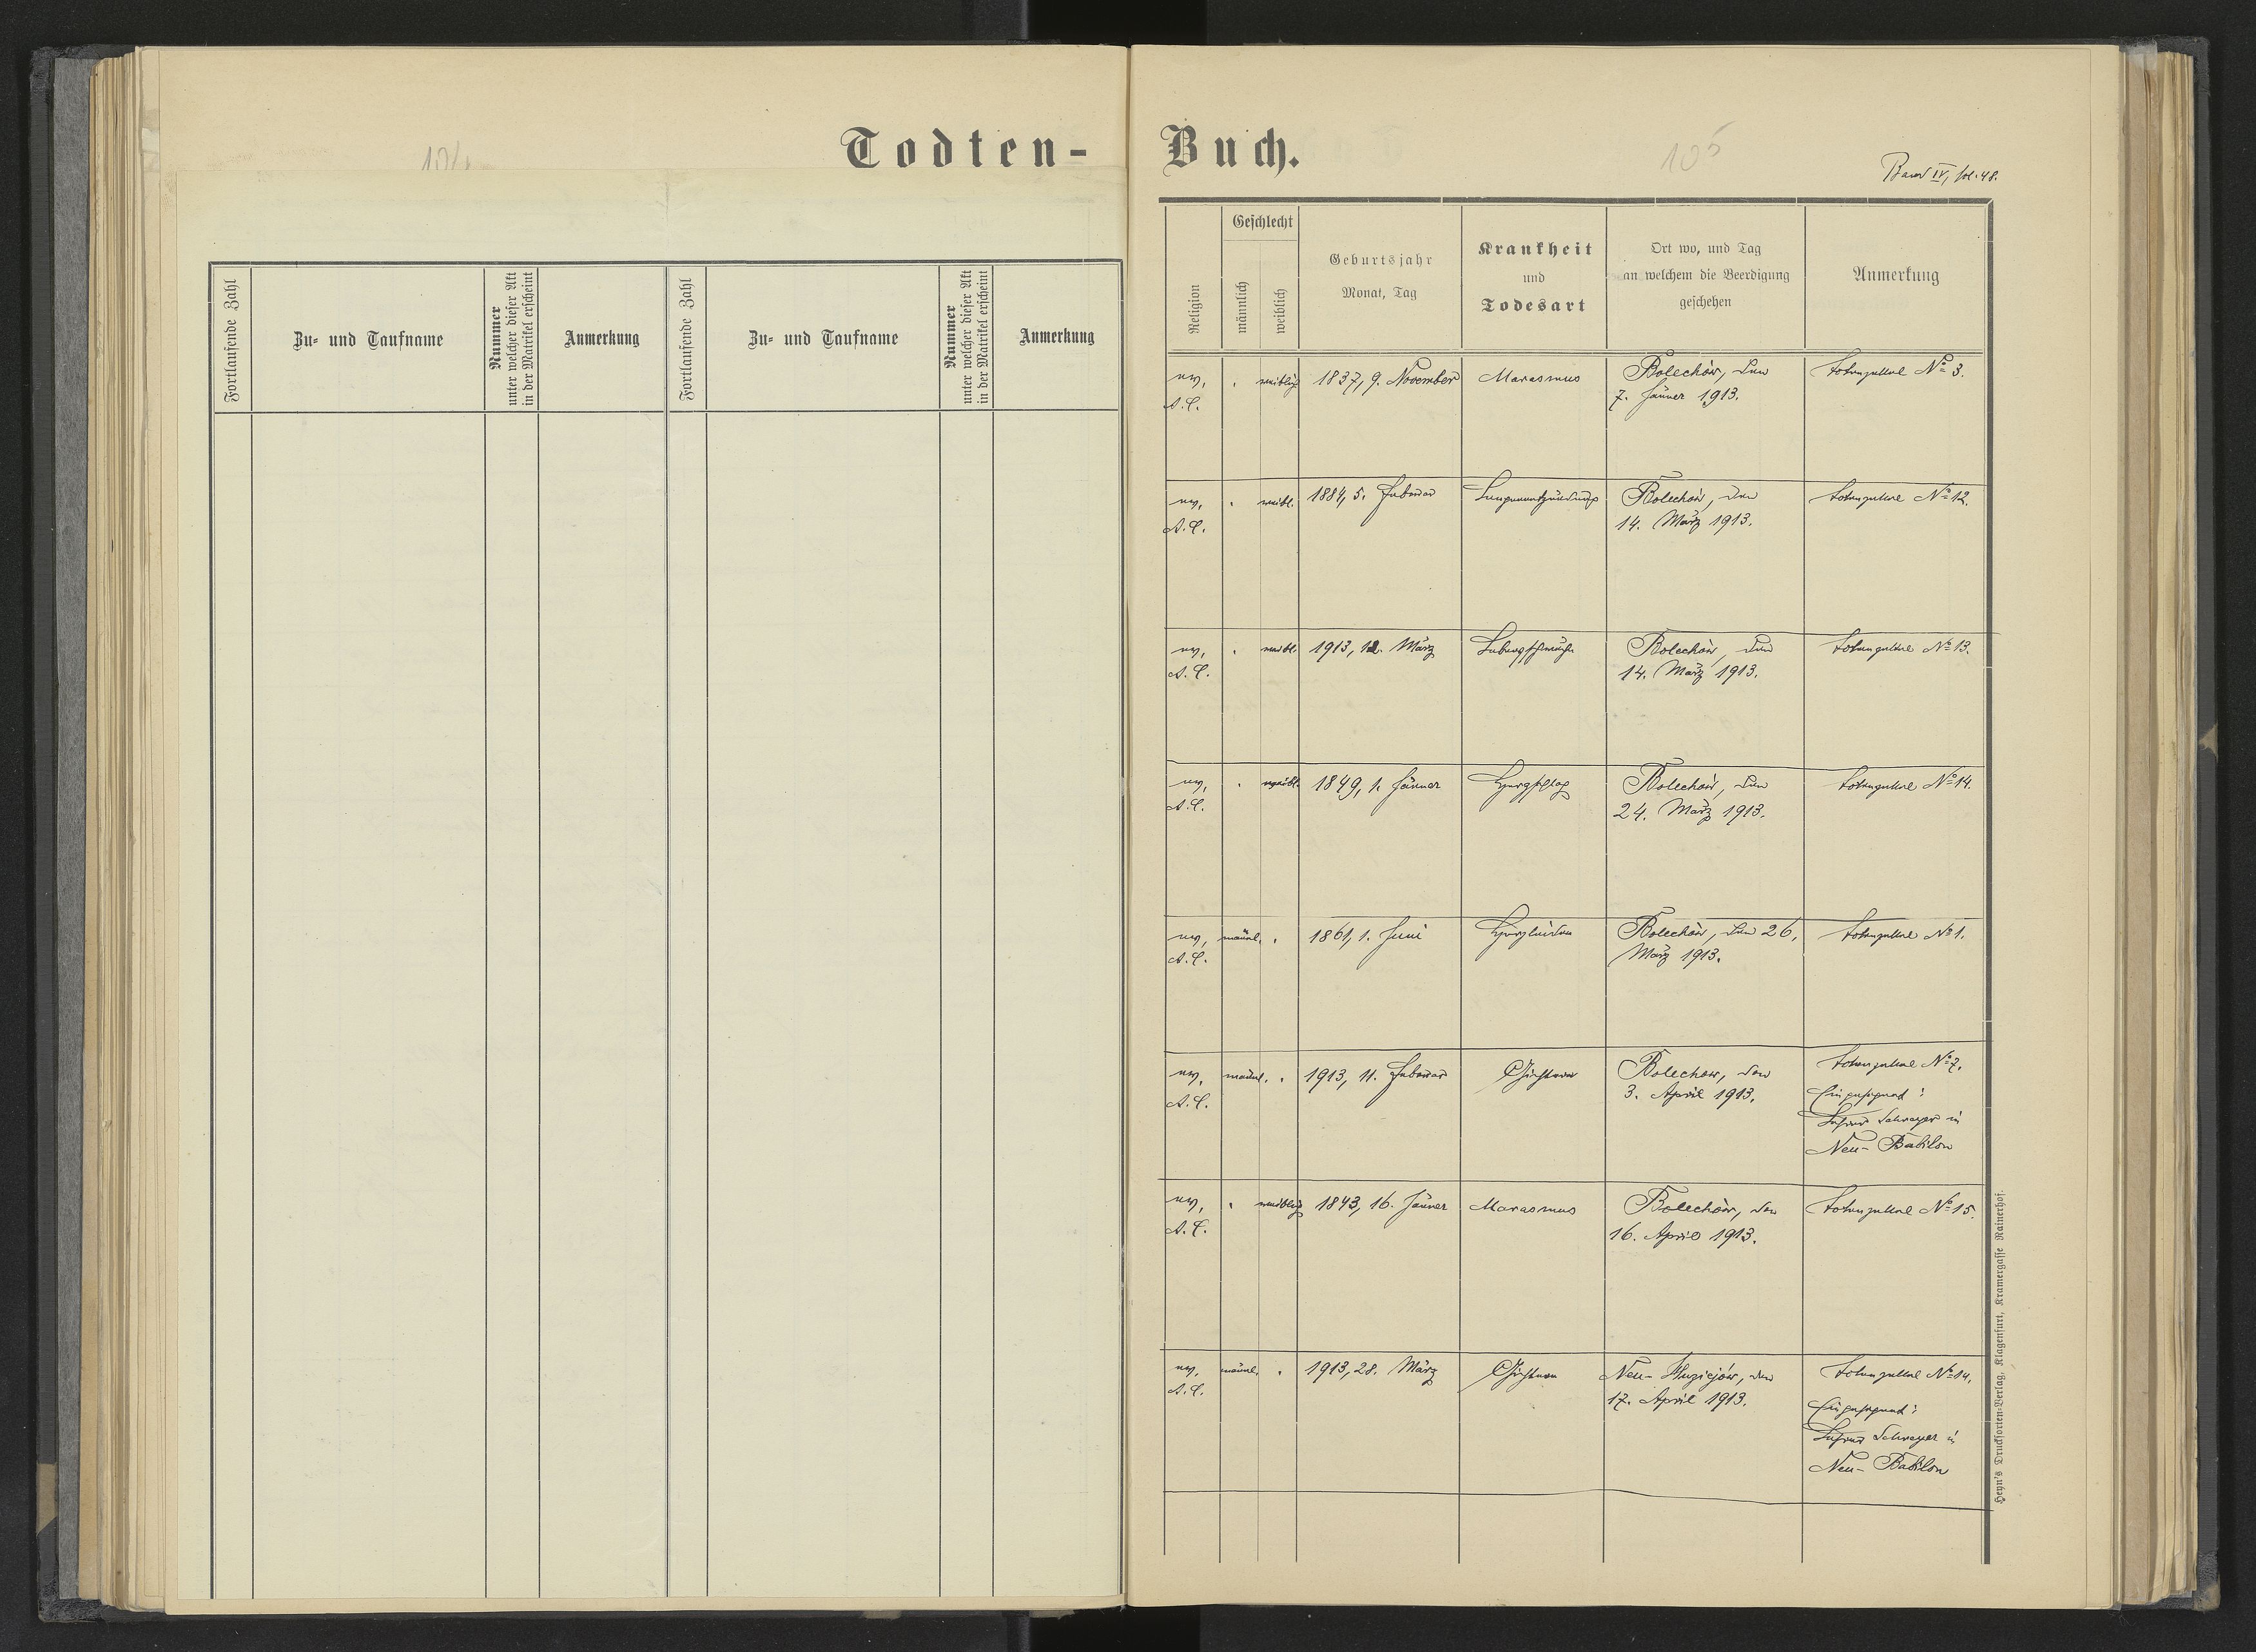 Todten-
Buch.
105
Band IV, fol. 48.
Fortlaufende Zahl
Zu- und Taufname
Nummer
unter welcher dieser Akt
in der Matrikel erscheint
Anmerkung
Fortlaufende Zahl
Zu- und Taufname
Nummer
unter welcher dieser Akt
in der Matrikel erscheint
Anmerkung
Religion
Geschlecht
männlich
weiblich
Geburtsjahr
Monat, Tag
Krankheit
und
Todesart
Ort wo, und Tag
an welchem die Beerdigung
geschehen
Anmerkung
ev. A.C.
weiblich
1837, 9. November
Marasmus
Bolechów, den
7. Jänner 1913.
Totenzettel No 3.
ev. A.C.
weibl.
1884, 5. Februar
Lungenentzündung
Bolechów, den
14. März 1913.
Totenzettel No 12.
ev. A.C.
weibl.
1913, 12. März
Lebensschwäche
Bolechów, den
14. März 1913.
Totenzettel No 13.
ev. A.C.
weibl.
1849, 1. Jänner
Herzschlag
Bolechów, den
24. März 1913.
Totenzettel No 14.
ev. A.C.
männl.
1861, 1. Juni
Herzleiden
Bolechów, den 26.
März 1913.
Totenzettel No 1.
ev. A.C.
männl.
1913, 11. Februar
Bolechów, den
3. April 1913.
Totenzettel No 7.
Eingesegnet:
Lehrer Schweyer in
Neu-Babilon
ev. A.C.
weiblich
1843, 16. Jänner
Marasmus
Bolechów, den
16. April 1913.
Totenzettel No 15.
ev. A.C.
männl.
1913, 28. März
Neu-
den
17. April 1913.
Totenzettel No 14.
Eingesegnet:
Lehrer Schweyer in
Neu-Babilon
Heyn's Drucksorten-Verlag, Klagenfurt, Kramergasse Rainerhof.